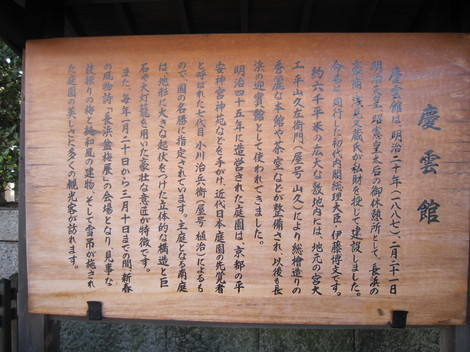 慶雲館
慶雲館は、明治二十年(一八八七)、二月二十一日
明治天皇、昭憲皇太后の御休憩所として、長浜の
豪商、浅見又蔵氏が私財を投じて建設しました。
命名は同行した初代内閣総理大臣、伊藤博文です。
約六千平米の広大な敷地内には、地元の宮大
工、平山久左衛門(屋号 山久)により総檜造りの
秀麗な本館や茶室などが整備され、以後も長
浜の迎賓館として使われてきました。
明治四十五年に造営された庭園は、京都の平
安神宮神苑などを手がけ、近代日本庭園の先覚者
と呼ばれた七代目 小川治兵衛(屋号 植治)によるも
ので、国の名勝に指定されています。主庭となる南庭
は地形に大きな起伏をつけた立体的な構造と巨
石や大灯籠を用いた豪壮な意匠が特徴です。
また、毎年一月二十日から三月十日までの間、新春
の風物詩「長浜盆梅展」の会場となり、見事な
枝振りの梅と純和風の建物、そして雪吊が施され
た庭園の美しさに多くの観光客が訪れます。